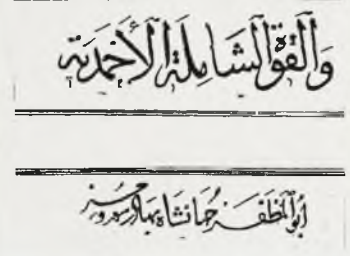 وَالْقُوَّةِ الشَّامِلَةِ الْأَحْمَدِيَّةِ
أبو المظفر جهانشاه بهادر